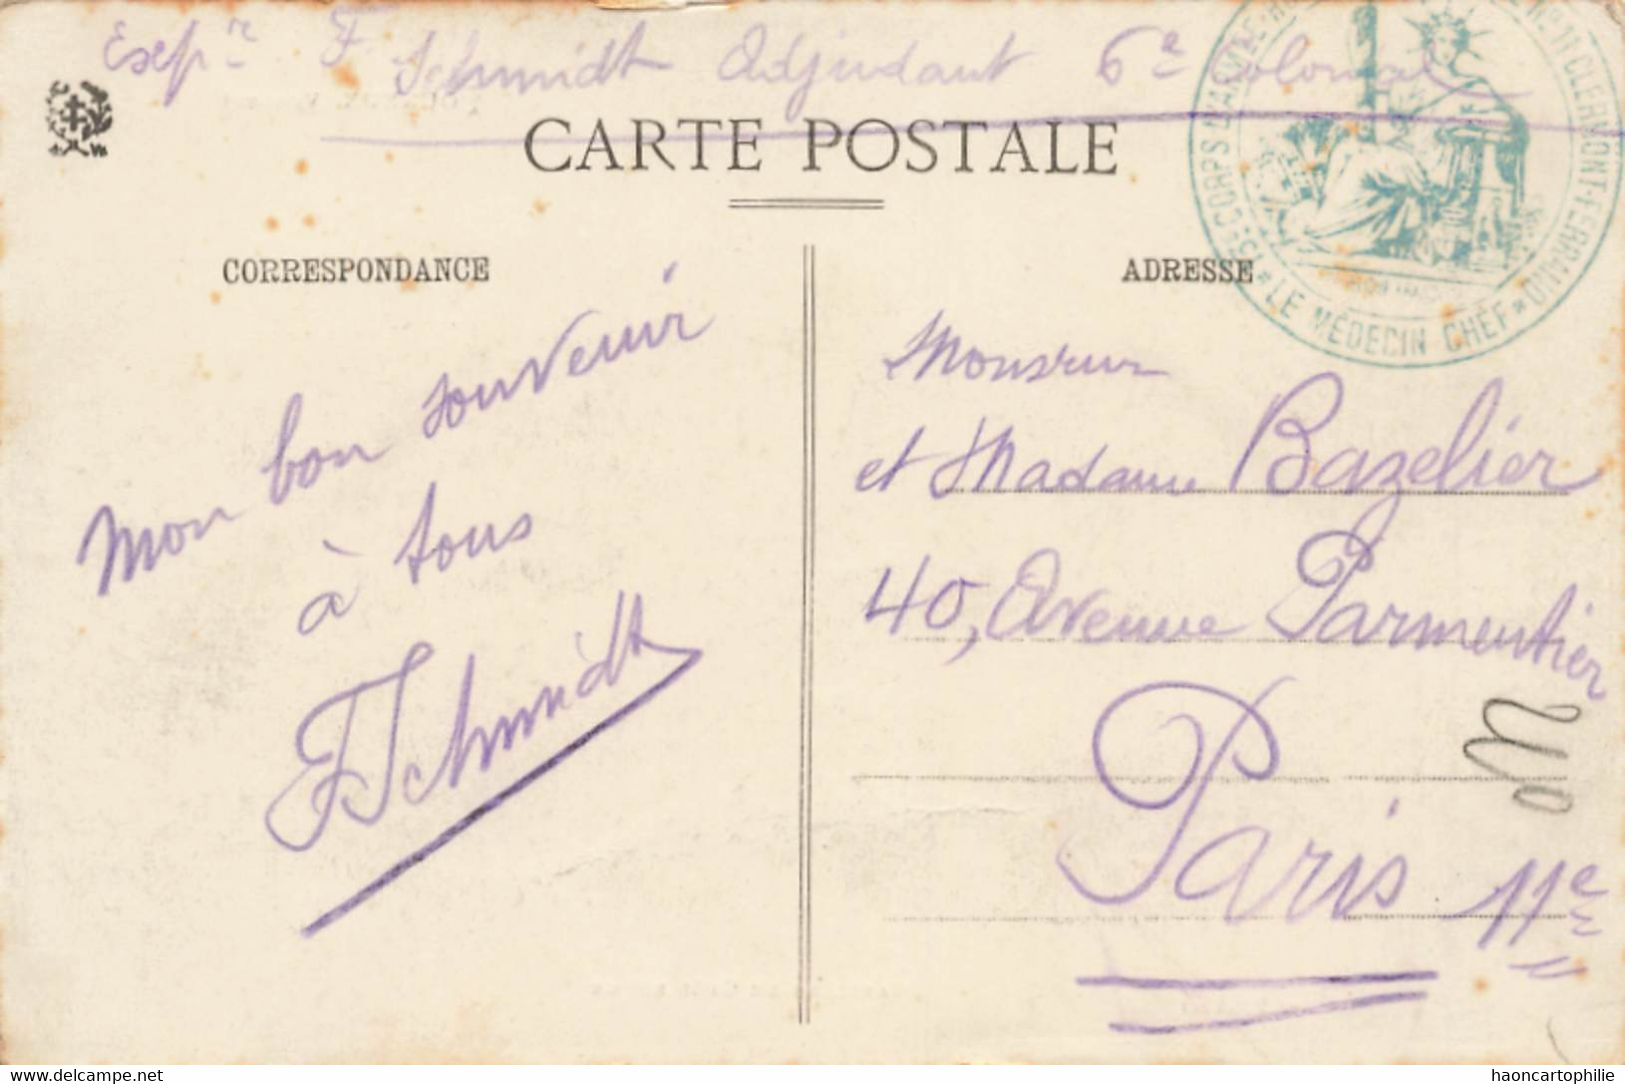 Exp.r F. Schmidt Adjudant 6e Colonial
CARTE POSTALE
CORRESPONDANCE
Mon bon souvenir
à tous
F Schmidt
ADRESSE
Monsieur
et Madame Bazelier
40, Avenue Parmentier
Paris 11e
13E CORPS D'ARMÉE
CLERMONT-FERRAND
* LE MÉDECIN CHEF *
www.delcampe.net
haoncartophilie